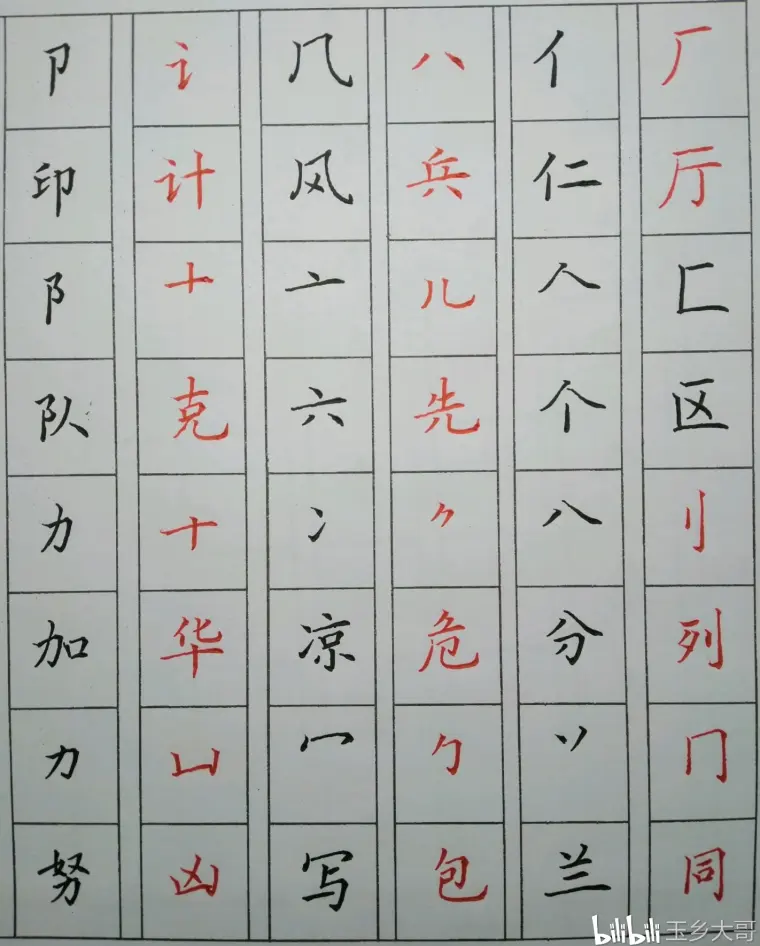 厂厅匚区刂列冂同
亻仁人个八分丷兰
八兵儿先⺈危勹包
几风亠六冫凉冖写
讠计十克十华凵凶
卩印阝队力加力努
bilibili 玉乡大哥